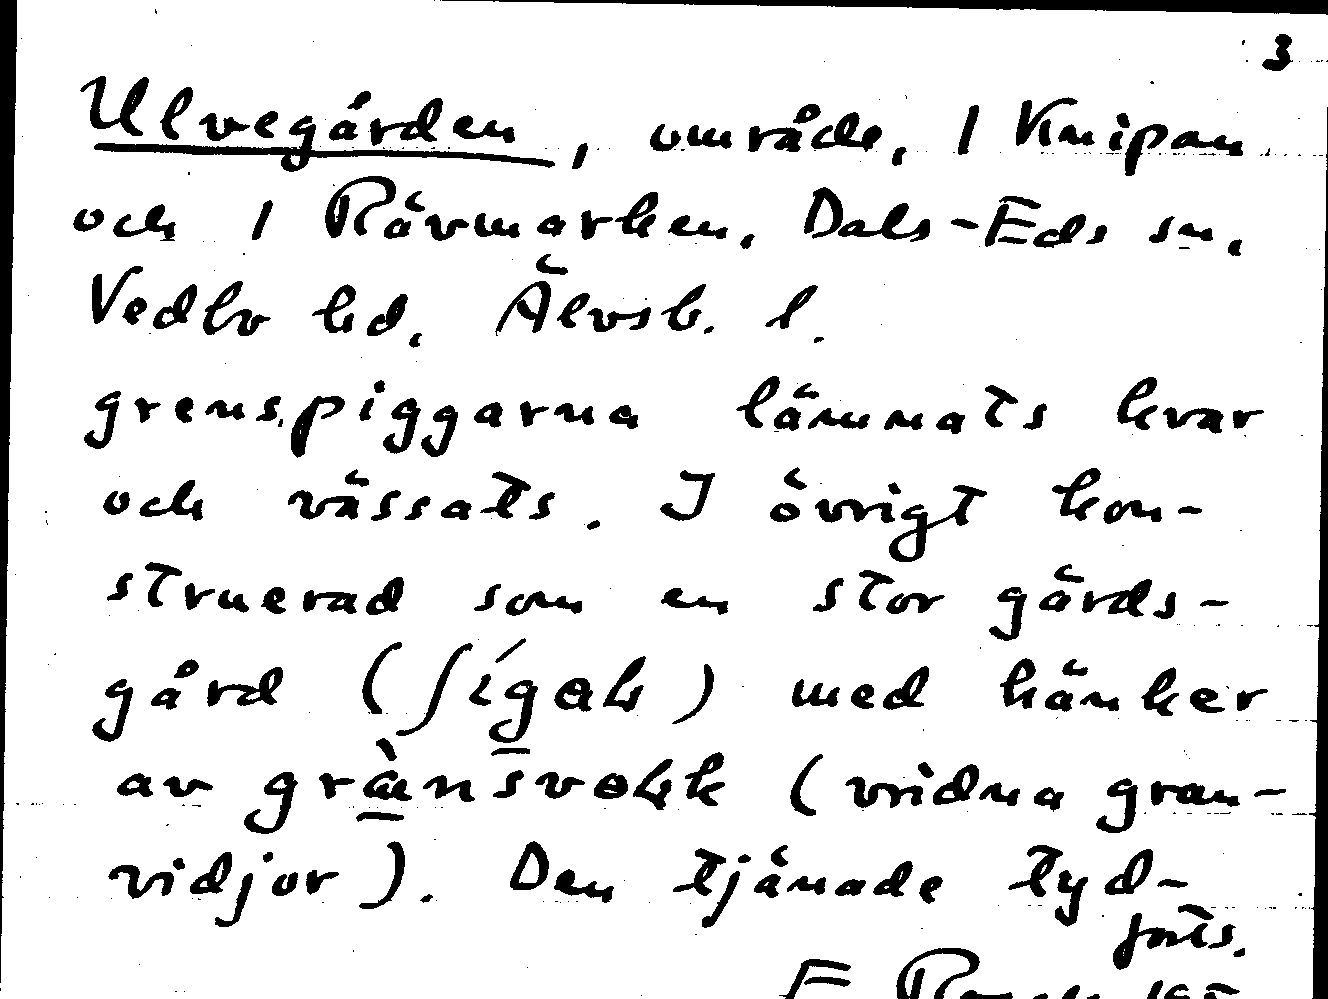 3
Ulvegården, område, 1 Knipan
och 1 Rävmarken, Dals-Eds sn,
Vedbo hd, Älvsb. l.
grenspiggarna lämnats kvar
och vässats. I övrigt kon-
struerad som en stor gärds-
gård (ʃígaɫ) med hänker
av
(vridna gran-
vidjor). Den tjänade tyd-
forts.